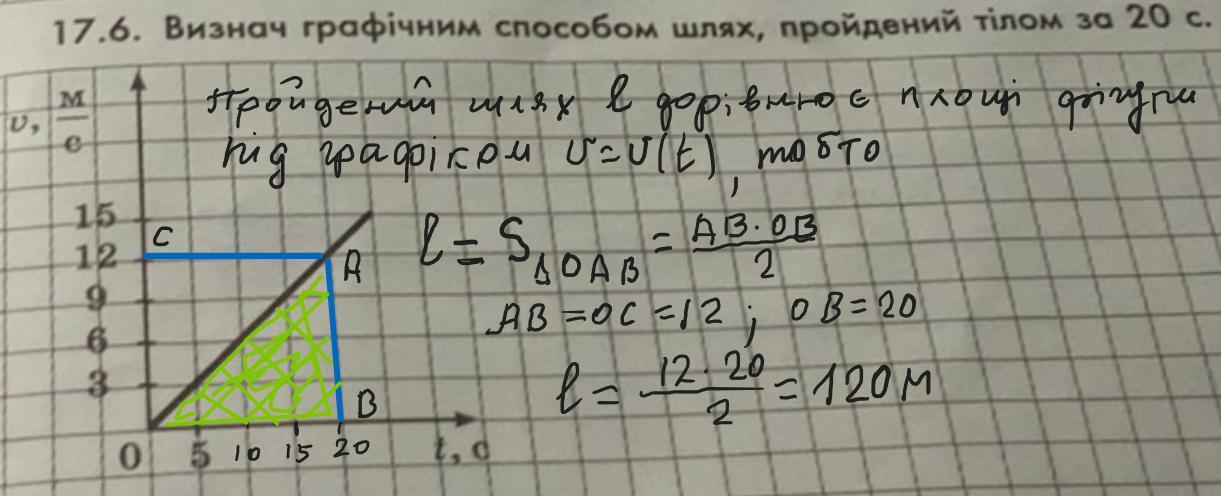 17.6. Визнач графічним способом шлях, пройдений тілом за 20 с.
υ, м/с
Пройдений шлях l дорівнює площі фігури
під графіком υ=υ(t), тобто
15
12
9
6
3
0
5 10 15 20 t, с
C
A
B
l = S△OAB = AB·OB/2
AB = OC = 12 ; OB = 20
l = 12·20/2 = 120 м